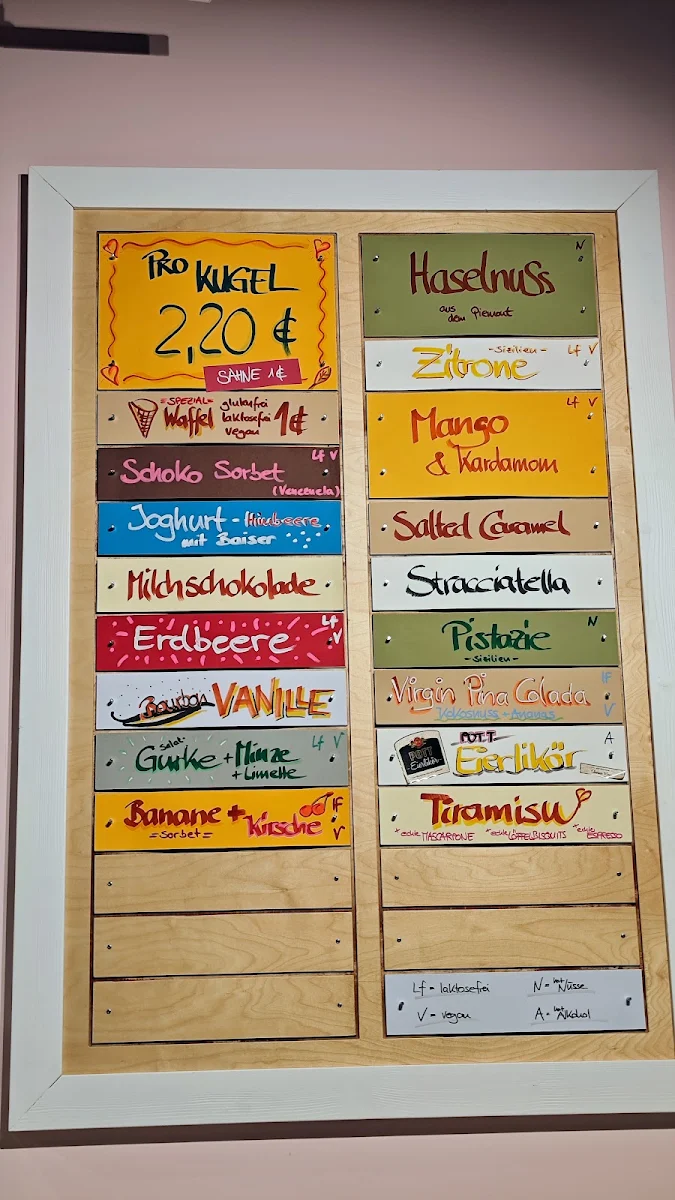 PRO KUGEL
2,20 €
SAHNE 1€
=SPEZIAL=
Waffel
glutenfrei
laktosefrei
vegan
1€
Schoko Sorbet
Lf V
(Venezuela)
Joghurt-Himbeere
mit Baiser
Milchschokolade
Erdbeere
Lf
V
Bourbon VANILLE
Salat-
Gurke + Minze
+ Limette
Lf V
Banane + Kirsche
=Sorbet=
lf
V
Haselnuss
N
aus
dem Piemont
Zitrone
-Sizilien-
Lf V
Mango
& Kardamom
Lf V
Salted Caramel
Stracciatella
Pistazie
N
-Sizilien-
Virgin Pina Colada
Kokosnuss + Ananas
lf
V
POTT
Eierlikör
POTT
Eierlikör
A
Tiramisu
*echte MASCARPONE *echte LÖFFELBISQUITS *echte ESPRESSO
Lf = laktosefrei
N = hat Nüsse
V = vegan
A = hat Alkohol